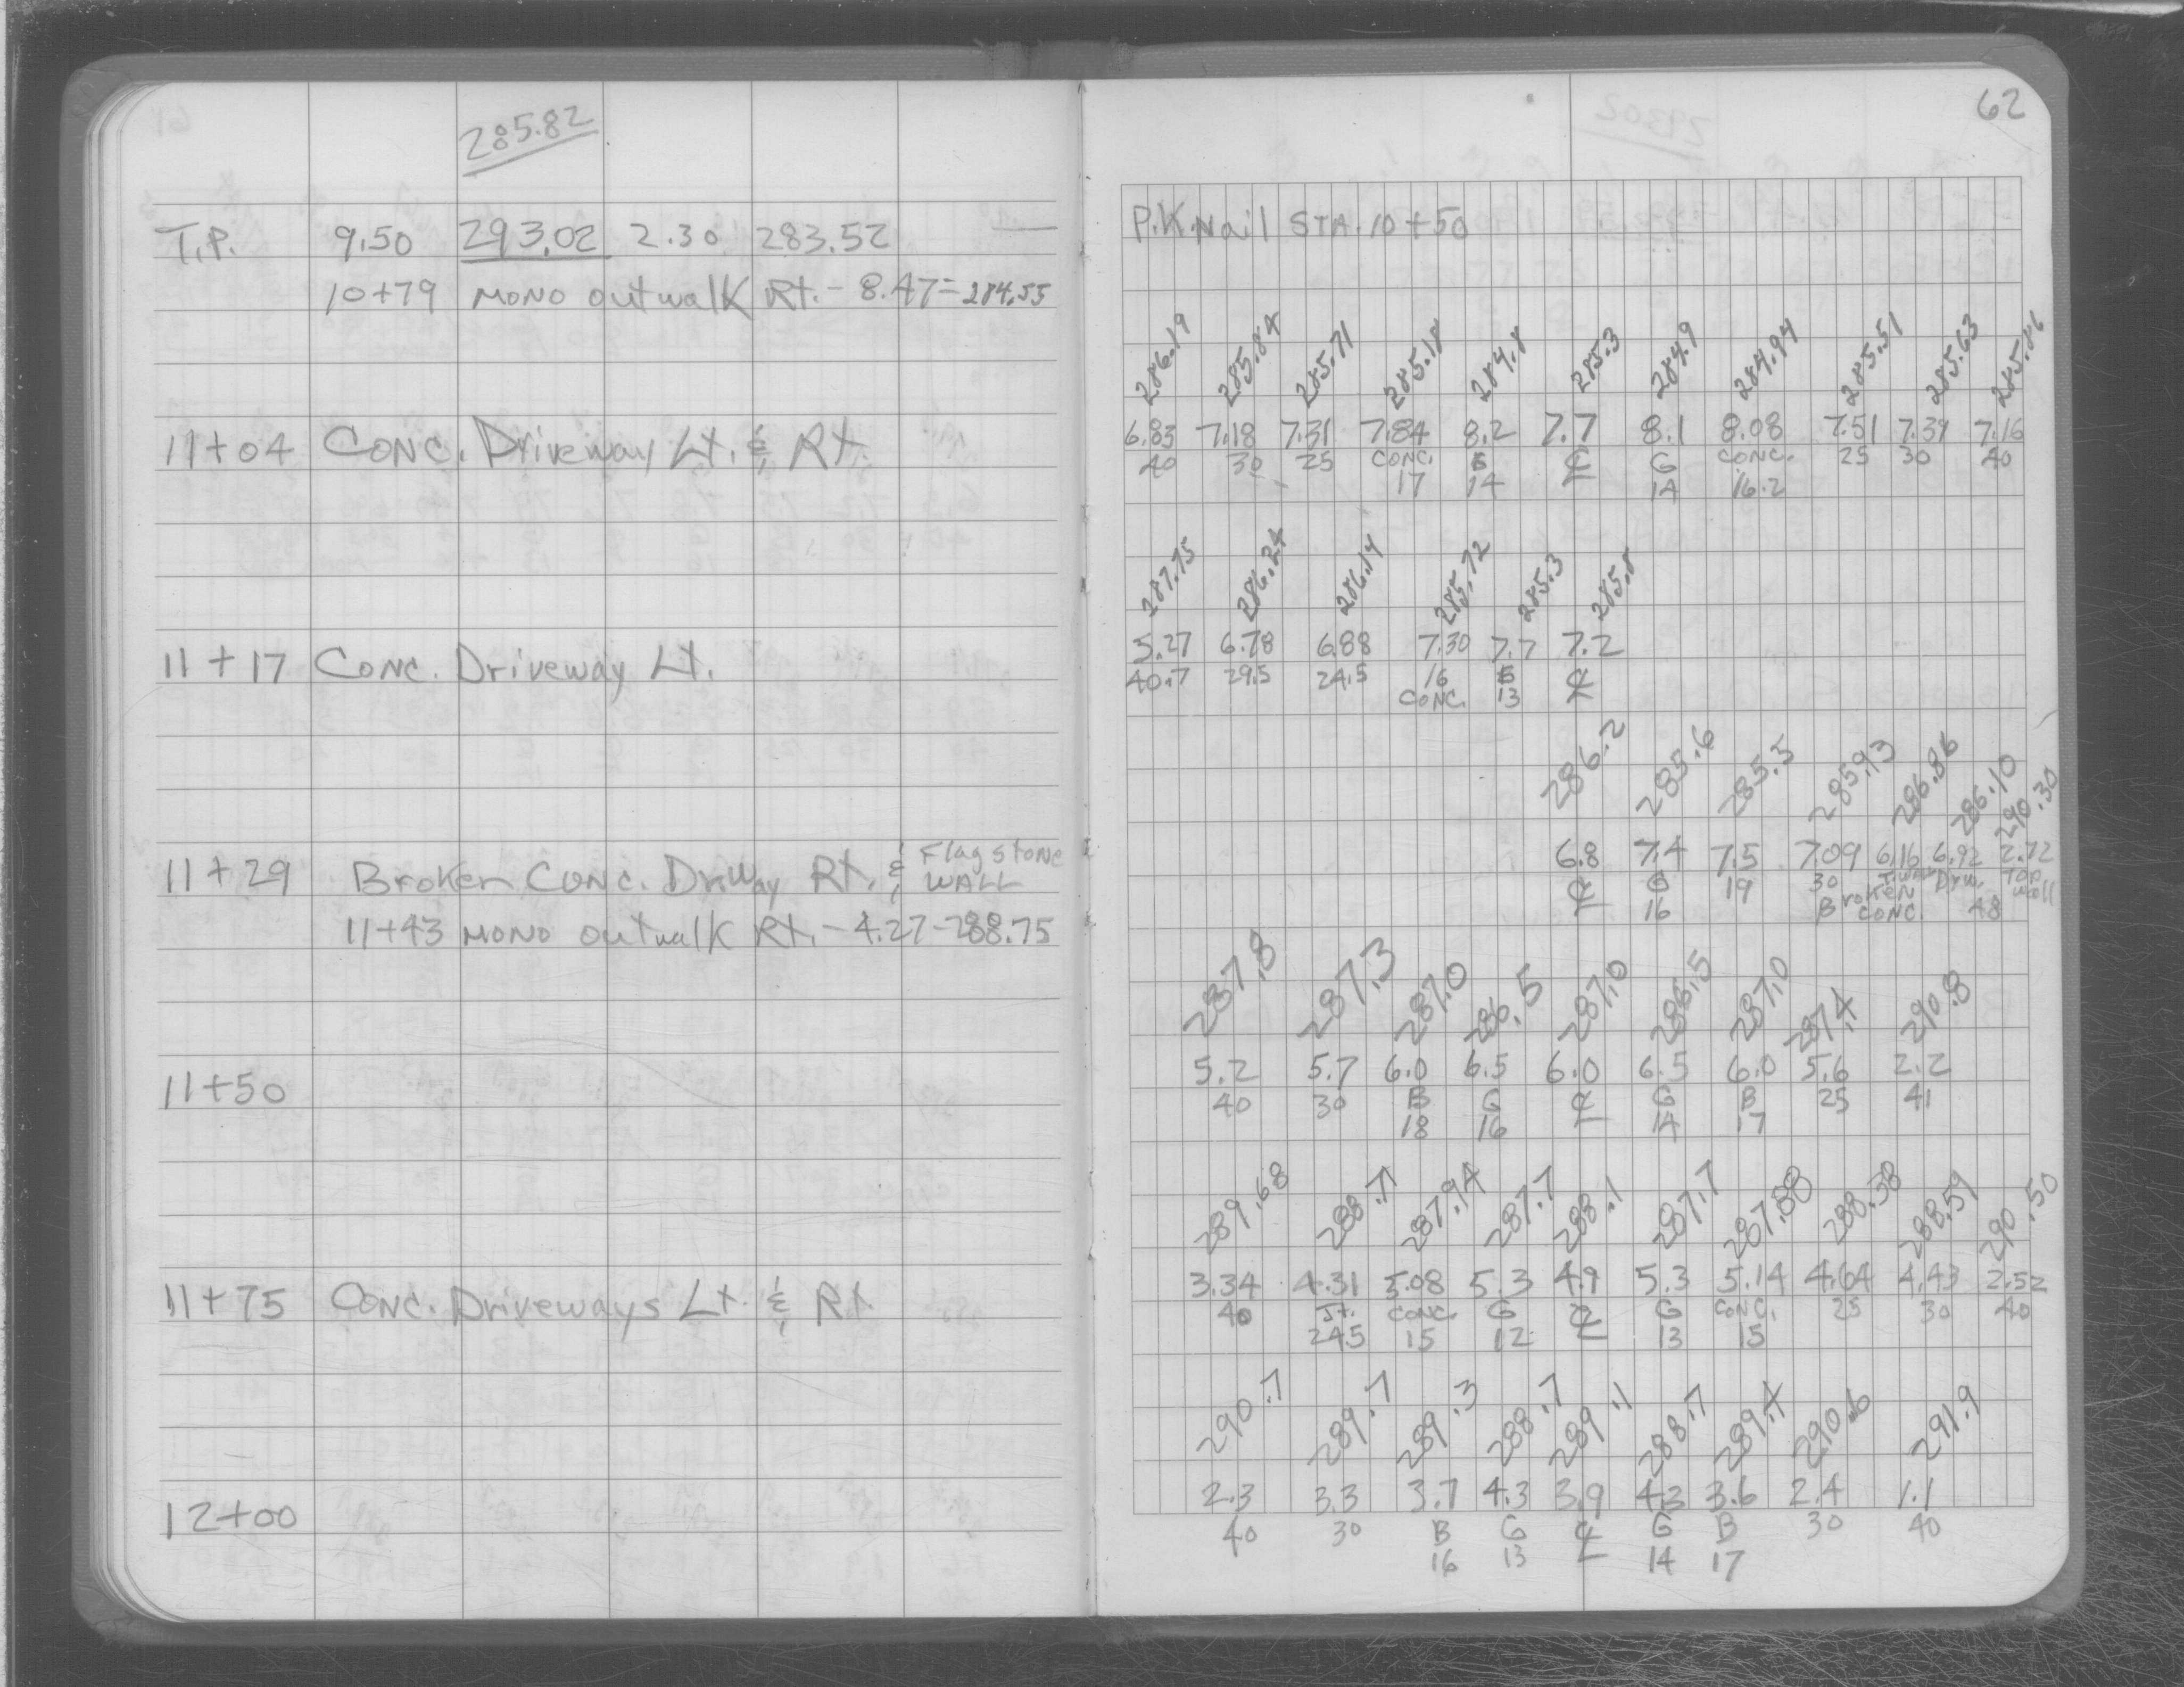 285.82
T.P. 9.50 293.02 2.30 283.52
10+79 MONO outwalk Rt. - 8.47 = 284.55
11+04 CONC. Driveway Lt. & Rt.
11+17 CONC. Driveway Lt.
11+29 Broken CONC. Driway Rt. & Flagstone WALL
11+43 MONO outwalk Rt. - 4.27 - 288.75
11+50
11+75 CONC. Driveways Lt. & Rt
12+00
62
P.K. Nail STA. 10+50
286.19 285.84 285.71 285.18 284.8 285.3 284.9 284.94 285.51 285.63 285.86
6.83 7.18 7.31 7.84 8.2 7.7 8.1 8.08 7.51 7.39 7.16
40 30 25 CONC. G ℄ G CONC. 25 30 40
17 14 14 16.2
287.75 286.24 286.14 285.72 285.3 285.8
5.27 6.78 6.88 7.30 7.7 7.2
40.7 29.5 24.5 16 G ℄
CONC. 13
286.2 285.6 285.5 285.93 286.86 286.10 290.30
6.8 7.4 7.5 7.09 6.16 6.92 2.72
℄ G 19 30 Drw. Top wall
16 Broken CONC. 48
287.8 287.3 287.0 286.5 287.0 286.5 287.0 287.4 290.8
5.2 5.7 6.0 6.5 6.0 6.5 6.0 5.6 2.2
40 30 B G ℄ G B 25 41
18 16 14 17
289.68 288.71 287.94 287.7 288.1 287.7 287.88 288.38 288.59 290.50
3.34 4.31 5.08 5.3 4.9 5.3 5.14 4.64 4.43 2.52
40 Jt. CONC. G ℄ G CONC. 25 30 40
24.5 15 12 13 15
290.7 289.7 289.3 288.7 289.1 288.7 289.4 290.6 291.9
2.3 3.3 3.7 4.3 3.9 4.3 3.6 2.4 1.1
40 30 B G ℄ G B 30 40
16 13 14 17